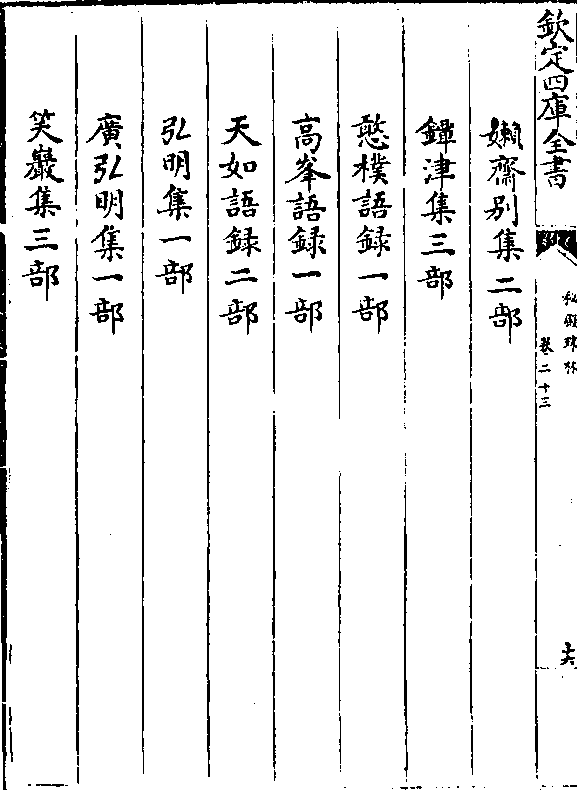 欽定四庫全書
秘殿珠林
卷二十三
十六
嬾齋別集二部
鐔津集三部
憨樸語録一部
高峯語録一部
天如語録二部
弘明集一部
廣弘明集一部
笑巖集三部